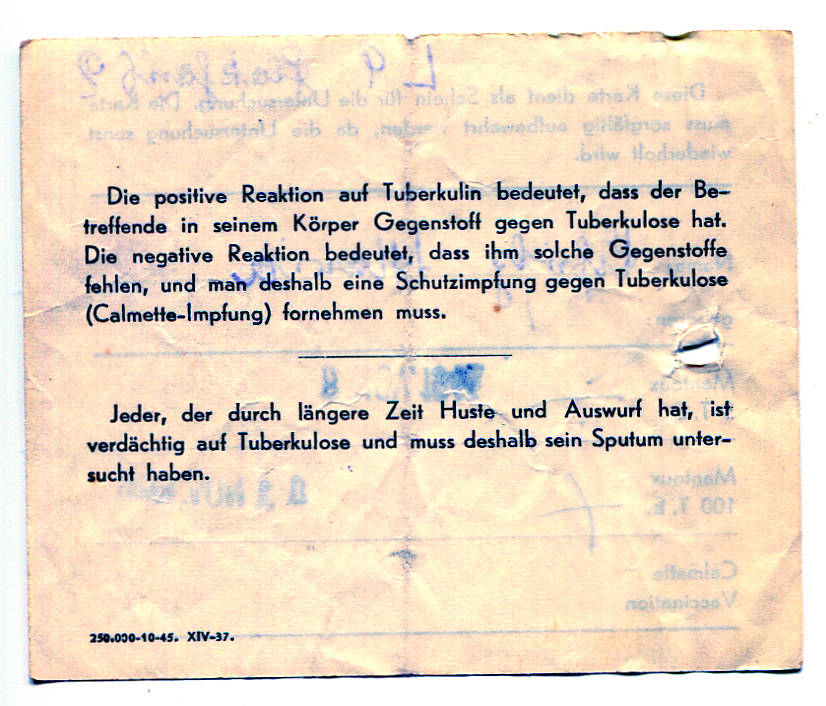 Die positive Reaktion auf Tuberkulin bedeutet, dass der Be-
treffende in seinem Körper Gegenstoff gegen Tuberkulose hat.
Die negative Reaktion bedeutet, dass ihm solche Gegenstoffe
fehlen, und man deshalb eine Schutzimpfung gegen Tuberkulose
(Calmette-Impfung) fornehmen muss.
Jeder, der durch längere Zeit Huste und Auswurf hat, ist
verdächtig auf Tuberkulose und muss deshalb sein Sputum unter-
sucht haben.
250.000-10-45. XIV-37.